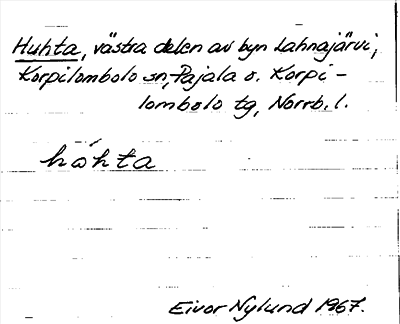 Huhta, västra delen av byn Lahnajärvi,
Korpilombolo sn, Pajala o. Korpi-
lombolo tg, Norrb. l.
hó̀hta
Eivor Nylund 1967.